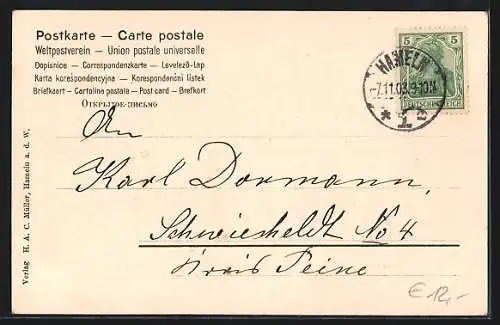 Postkarte — Carte postale
Weltpostverein — Union postale universelle
Dopisnice — Correspondenzkarte — Levelező-Lap
Karta korespondencyjna — Korespondenční listek
Briefkaart — Cartolina postale — Post card — Brefkort
Открытое-письмо
5 5
DEUTSCHES REICH
HAMELN
-7.11.03.9-10V.
* 1 c
An
Karl Dormann,
Schwicheldt No 4
Kreis Peine
Verlag H. A. C. Müller, Hameln a. d. W.
€ 12,-